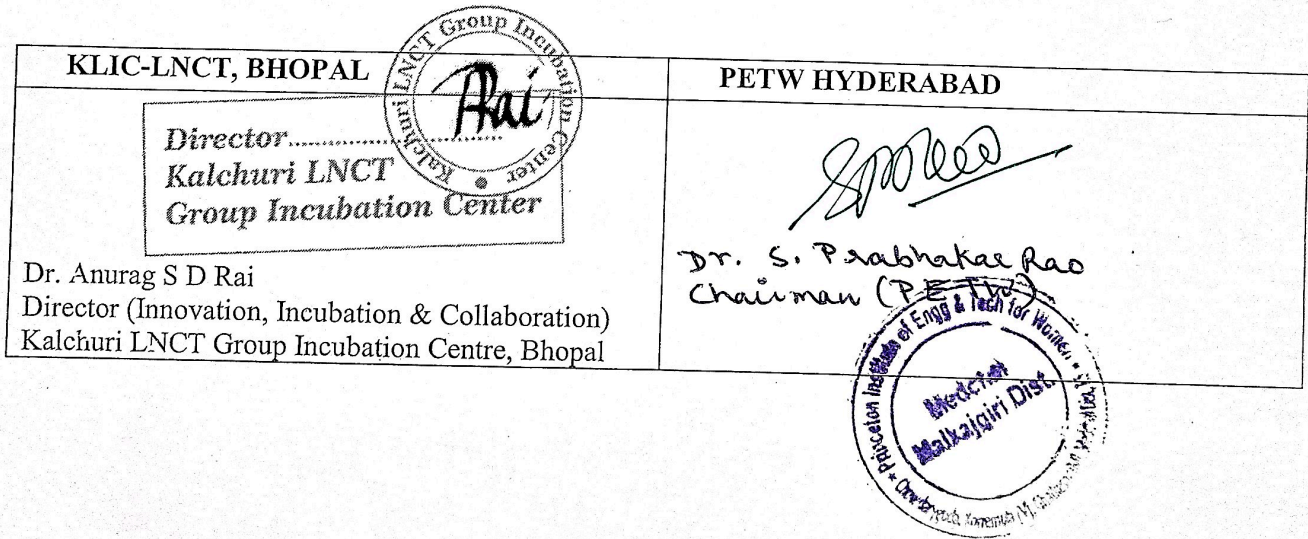 KLIC-LNCT, BHOPAL
Kalchuri LNCT Group Incubation Center
Rai
Director....................
Kalchuri LNCT
Group Incubation Center
Dr. Anurag S D Rai
Director (Innovation, Incubation & Collaboration)
Kalchuri LNCT Group Incubation Centre, Bhopal
PETW HYDERABAD
Dr. S. Prabhakar Rao
Chairman (PETW)
Princeton Institute of Engg & Tech for Women
Medchal
Malkajgiri Dist.